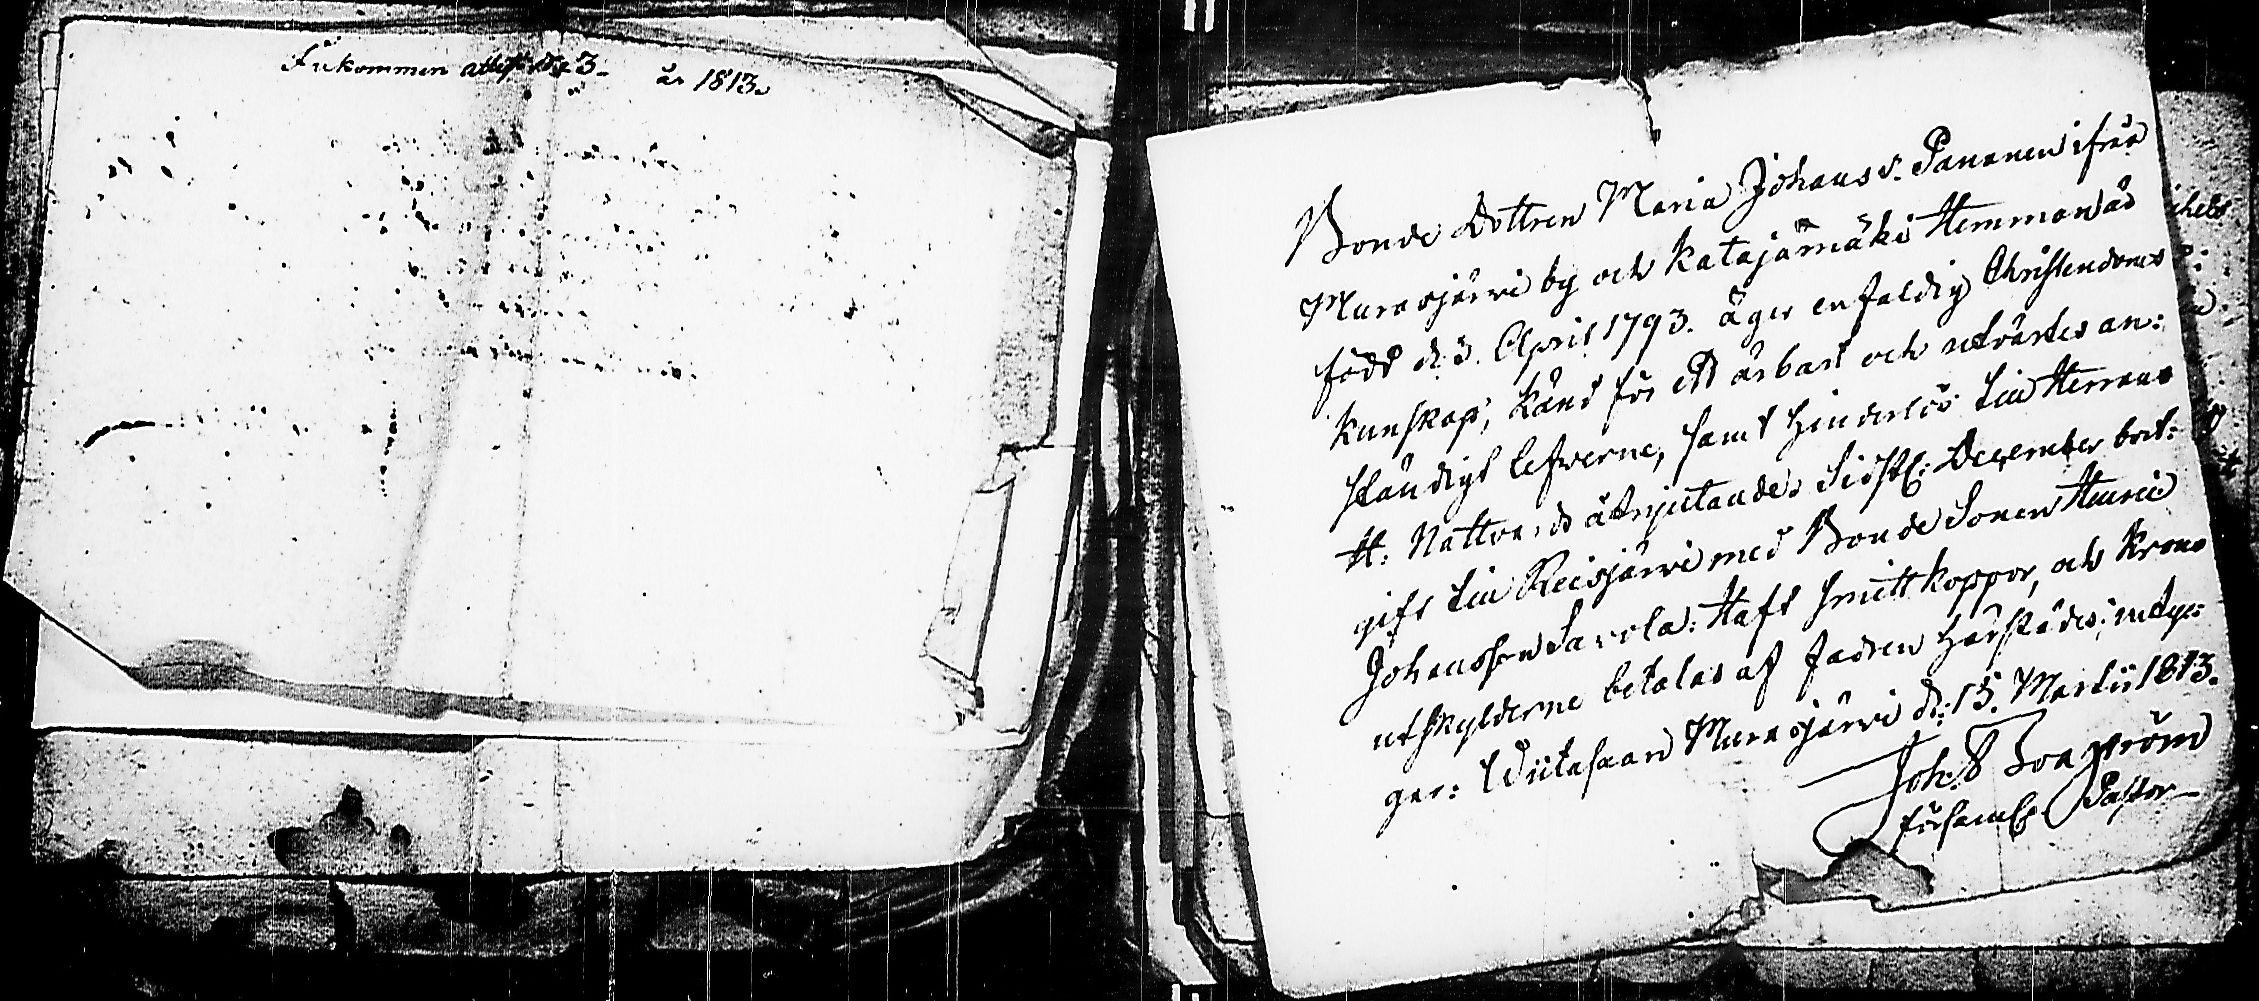 Inkommen attest No 3. år 1813.
Bonde Dottren Maria Johansd. Pananen ifrån
Murasjärvi by och Katajämäki Hemman är
född d. 3. April 1793. äger enfaldig Christendoms
kunskap, känd för ett ärbart och utvärtes an:
ständigt lefverne, samt hinderlös till Herrans
H: Nattvards åtnjutande. Sidstl: December bort:
gift till Reisjärvi med Bonde Sonen Henric
Johansson Savola: Haft Smittkoppor, och Krono
utskylderne betalas af fadren härstädes; intyg:
gar: Wiitasaari Murasjärvi d: 15. Martii 1813.
Joh:
Församl: Pastor